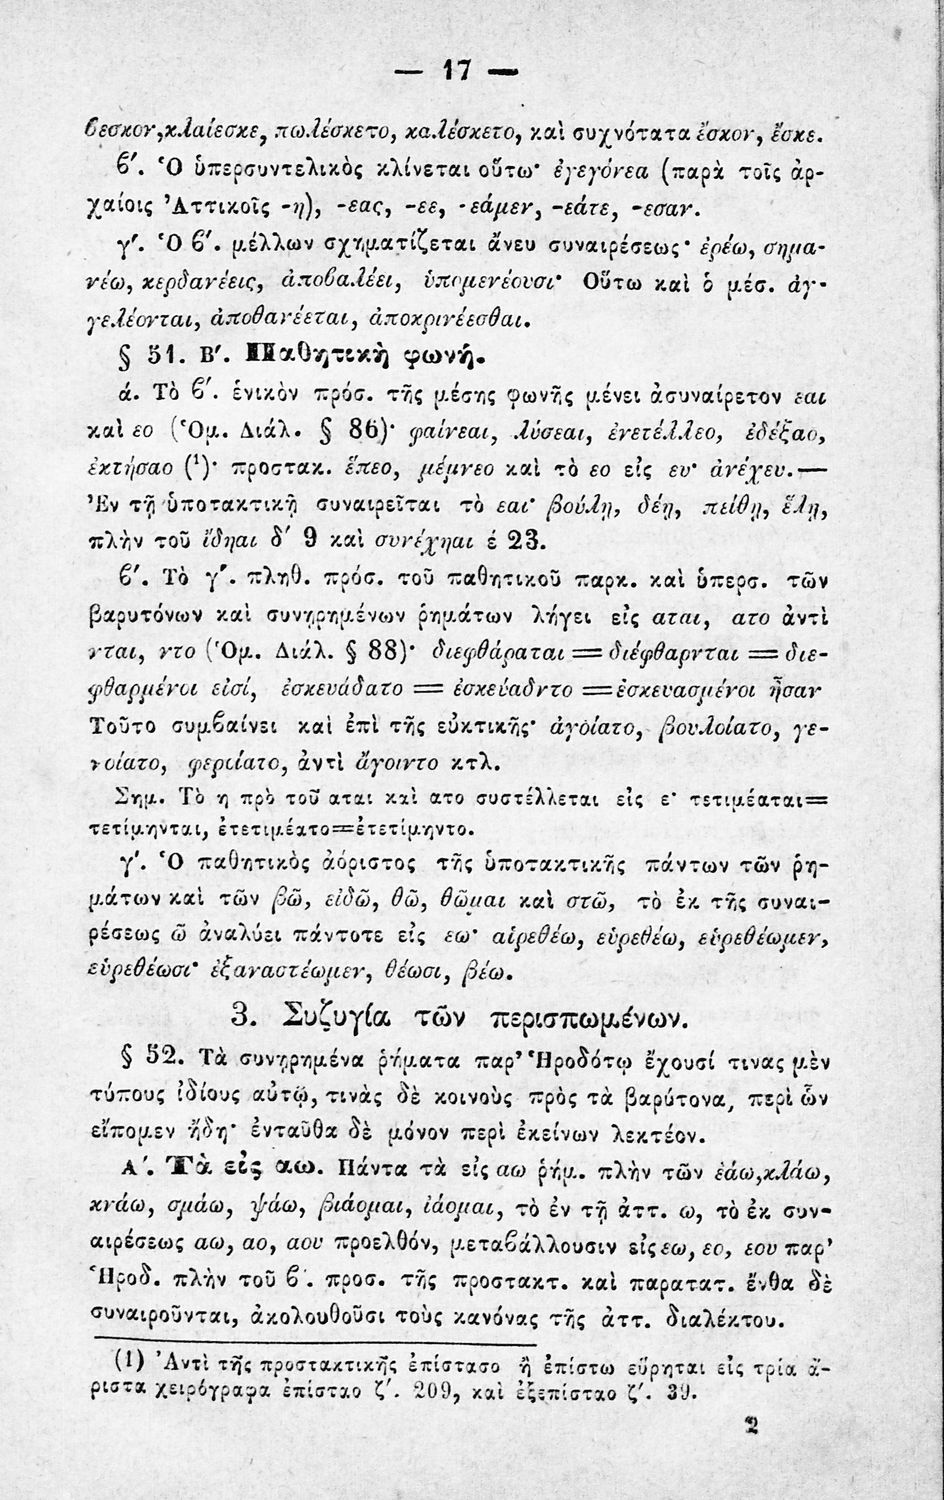 — 17 —
βεσκον, κλαίεσκε, πωλέσκετο, καλέσκετο, καὶ συχνότατα ἔσκον, ἔσκε.
β′. Ὁ ὑπερσυντελικὸς κλίνεται οὕτω· ἐγεγόνεα (παρὰ τοῖς ἀρ-
χαίοις Ἀττικοῖς -η), -εας, -εε, -εάμεν, -εάτε, -εσαν.
γ′. Ὁ β′. μέλλων σχηματίζεται ἄνευ συναιρέσεως· ἐρέω, σημα-
νέω, κερδανέεις, ἀποβαλέει, ὑπομενέουσι· Οὕτω καὶ ὁ μέσ. ἀγ-
γελέονται, ἀποθανέεται, ἀποκρινέεσθαι.
§ 51. Β′. Παθητικὴ φωνή.
ά. Τὸ β′. ἑνικὸν πρόσ. τῆς μέσης φωνῆς μένει ἀσυναίρετον εαι
καὶ εο (Ὁμ. Διάλ. § 86)· φαίνεαι, λύσεαι, ἐνετέλλεο, ἐδέξαο,
ἐκτήσαο (¹)· προστακ. ἕπεο, μέμνεο καὶ τὸ εο εἰς ευ· ἀνέχευ.—
Ἐν τῇ ὑποτακτικῇ συναιρεῖται τὸ εαι· βούλῃ, δέῃ, πείθῃ, ἕλῃ,
πλὴν τοῦ ἴδηαι δ′ 9 καὶ συνέχηαι έ 23.
β′. Τὸ γ′. πληθ. πρόσ. τοῦ παθητικοῦ παρκ. καὶ ὑπερσ. τῶν
βαρυτόνων καὶ συνῃρημένων ῥημάτων λήγει εἰς αται, ατο ἀντὶ
νται, ντο (Ὁμ. Διάλ. § 88)· διεφθάραται = διέφθαρνται = διε-
φθαρμένοι εἰσί, ἐσκευάδατο = ἐσκεύαδντο = ἐσκευασμένοι ἦσαν
Τοῦτο συμβαίνει καὶ ἐπὶ τῆς εὐκτικῆς· ἀγοίατο, βουλοίατο, γε-
νοίατο, φεροίατο, ἀντὶ ἄγοιντο κτλ.
Σημ. Τὸ η πρὸ τοῦ αται καὶ ατο συστέλλεται εἰς ε· τετιμέαται=
τετίμηνται, ἐτετιμέατο=ἐτετίμηντο.
γ′. Ὁ παθητικὸς ἀόριστος τῆς ὑποτακτικῆς πάντων τῶν ῥη-
μάτων καὶ τῶν βῶ, εἰδῶ, θῶ, θῶμαι καὶ στῶ, τὸ ἐκ τῆς συναι-
ρέσεως ῶ ἀναλύει πάντοτε εἰς εω· αἱρεθέω, εὑρεθέω, εὑρεθέωμεν,
εὑρεθέωσι· ἐξαναστέωμεν, θέωσι, βέω.
3. Συζυγία τῶν περισπωμένων.
§ 52. Τὰ συνῃρημένα ῥήματα παρ' Ἡροδότῳ ἔχουσί τινας μὲν
τύπους ἰδίους αὐτῷ, τινὰς δὲ κοινοὺς πρὸς τὰ βαρύτονα, περὶ ὧν
εἴπομεν ἤδη· ἐνταῦθα δὲ μόνον περὶ ἐκείνων λεκτέον.
Α′. Τὰ εἰς αω. Πάντα τὰ εἰς αω ῥήμ. πλὴν τῶν ἐάω, κλάω,
κνάω, σμάω, ψάω, βιάομαι, ἰάομαι, τὸ ἐν τῇ ἀττ. ω, τὸ ἐκ συν-
αιρέσεως αω, αο, αου προελθόν, μεταβάλλουσιν εἰς εω, εο, εου παρ'
Ἡροδ. πλὴν τοῦ β′. προσ. τῆς προστακτ. καὶ παρατατ. ἔνθα δὲ
συναιροῦνται, ἀκολουθοῦσι τοὺς κανόνας τῆς ἀττ. διαλέκτου.
(1) Ἀντὶ τῆς προστακτικῆς ἐπίστασο ἢ ἐπίστω εὕρηται εἰς τρία ἄ-
ριστα χειρόγραφα ἐπίσταο ζ′. 209, καὶ ἐξεπίσταο ζ′. 39.
2